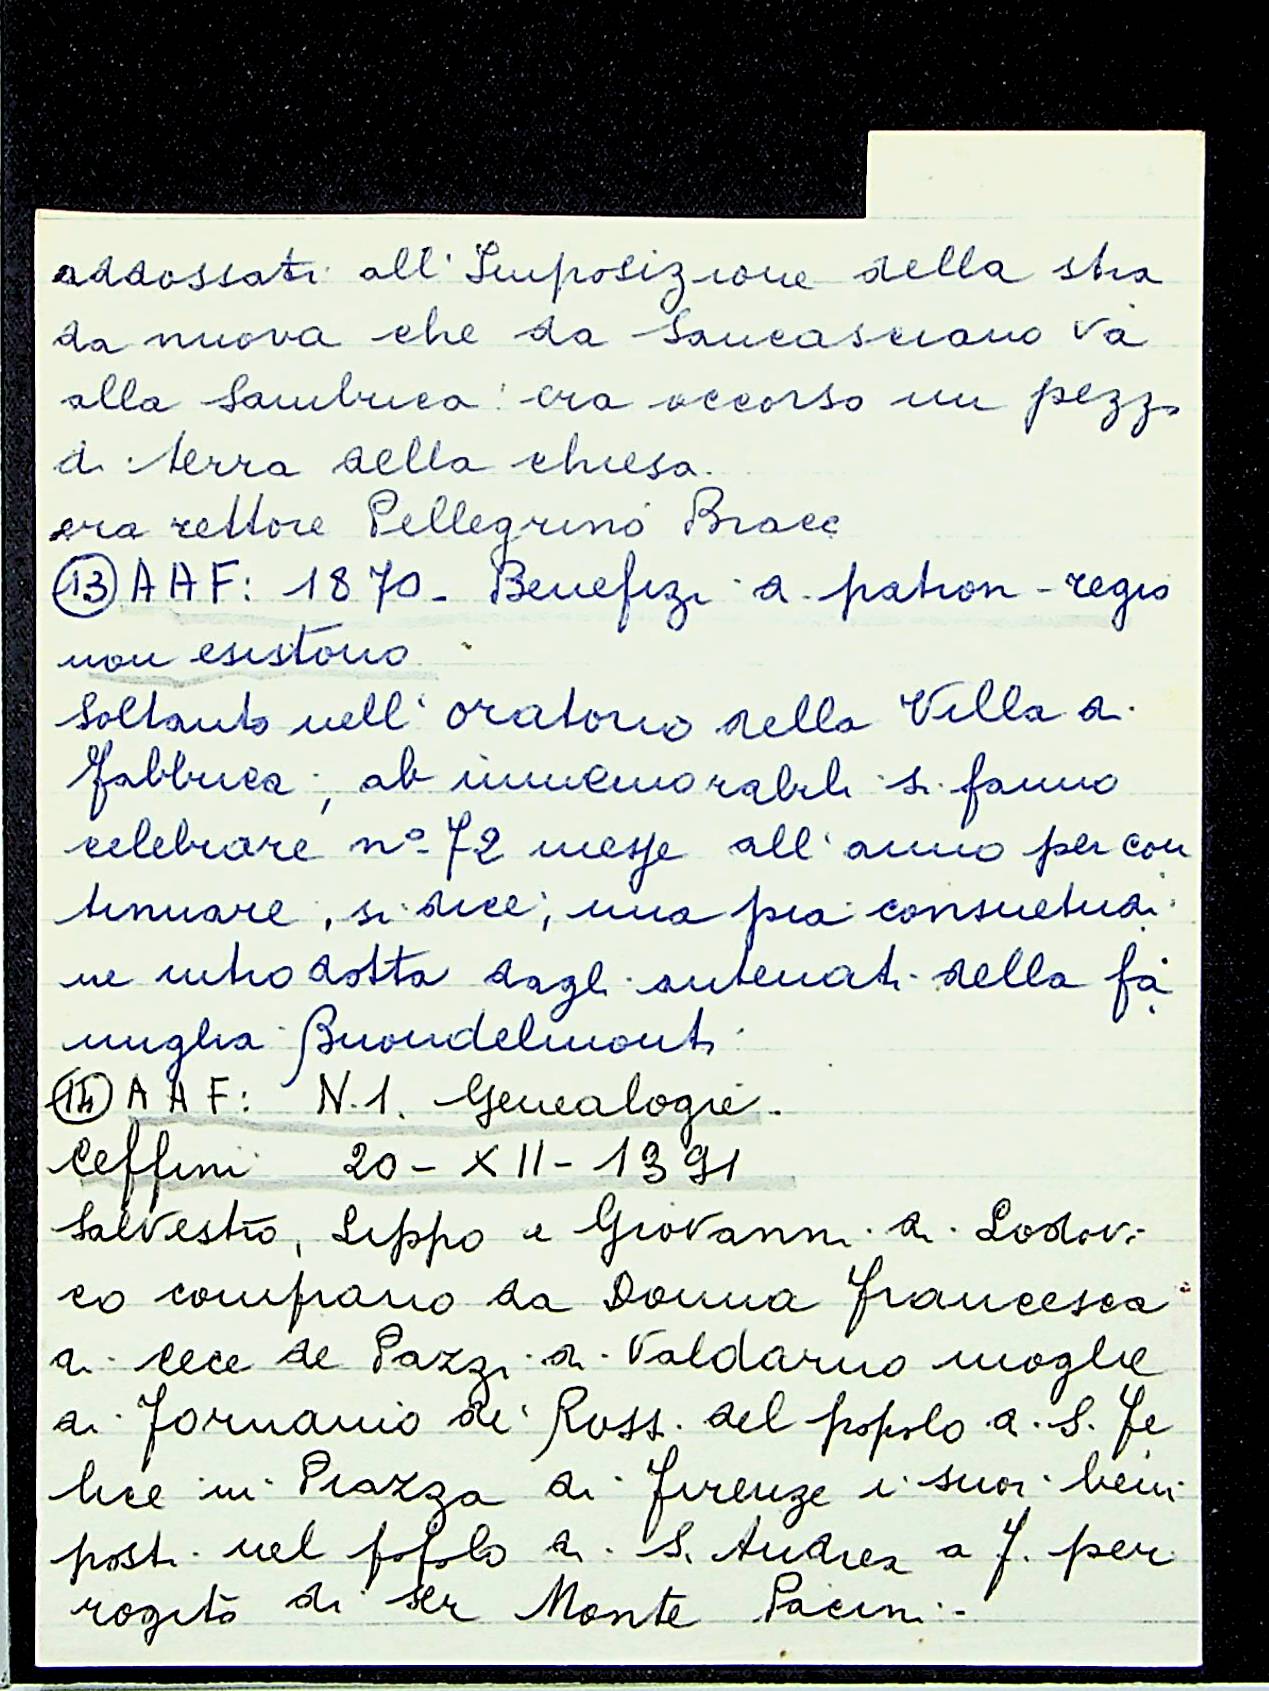 addossati all'Imposizione della stra
da nuova che da Sancasciano va
alla Sambuca: era occorso un pezzo
di terra della chiesa.
era rettore Pellegrino Bracc
(13) A A F: 1870 - Benefizi di patron-regio
non esistono
Soltanto nell'oratorio della Villa di
Fabbrica, ab immemorabili si fanno
celebrare n° 72 messe all'anno per con
tinuare, si dice, una pia consuetudi
ne introdotta dagli antenati della fa
miglia Buondelmonti.
(14) A A F: N. 1. Genealogie.
Ceffini 20 - XII - 1391
Salvestro, Lippo e Giovanni di Lodovi
co comprano da Donna Francesca
di Cece de Pazzi di Valdarno moglie
di Fornanio de' Rossi del popolo di S. Fe
lice in Piazza di Firenze i suoi beni
posti nel popolo di S. Andrea a F. per
rogito di ser Monte Pacini.-